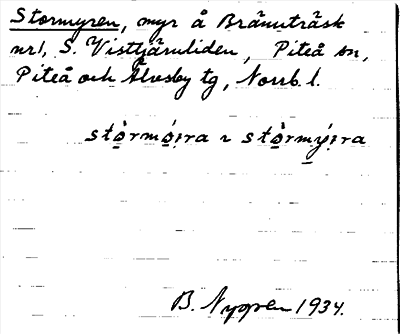 Stormyren, myr å Brännträsk
nr1, S. Visttränliden, Piteå sn,
Piteå och Älvsby tg, Norrb. l.
stòrmọ́ıra ı stòrmýıra
B. Nygren 1934.